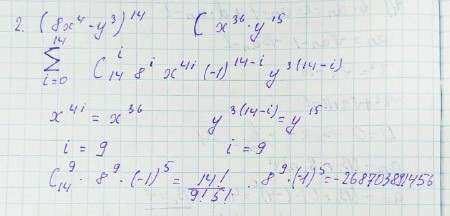 2. (8x⁴-y³)¹⁴ C x³⁶·y¹⁵
14
∑ Cⁱ₁₄ 8ⁱ x⁴ⁱ (-1)¹⁴⁻ⁱ y³⁽¹⁴⁻ⁱ⁾
i=0
x⁴ⁱ = x³⁶ y³⁽¹⁴⁻ⁱ⁾ = y¹⁵
i = 9 i = 9
C⁹₁₄ · 8⁹ · (-1)⁵ = 14!/9!5! · 8⁹ · (-1)⁵ = -268703891456